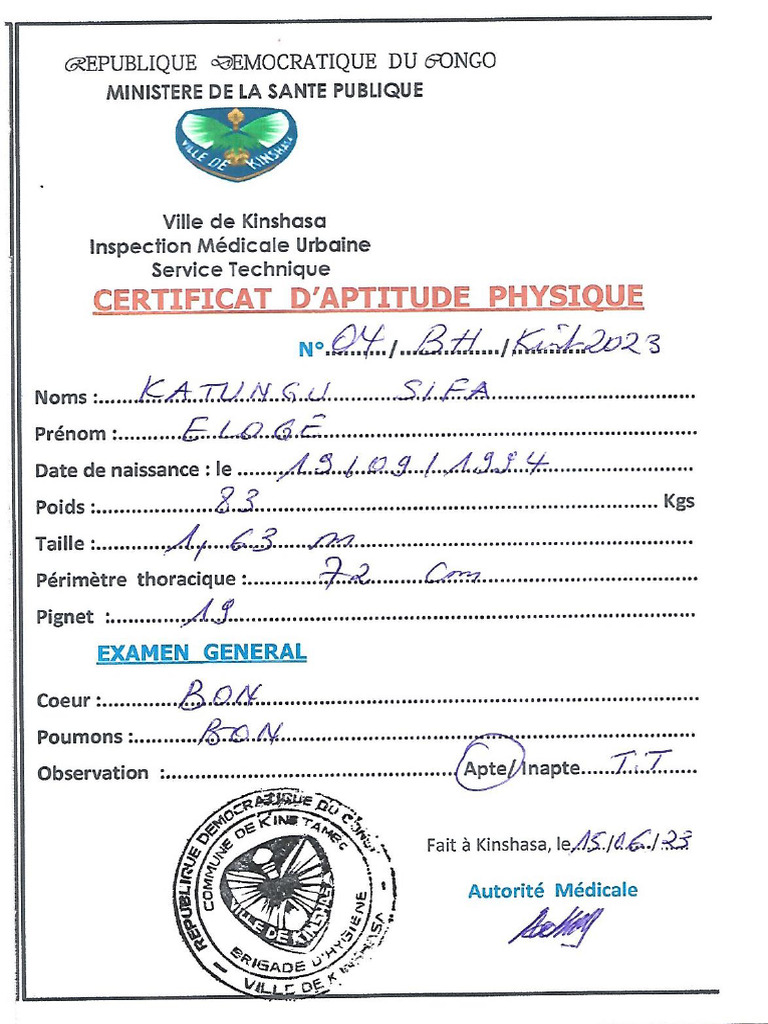 REPUBLIQUE DEMOCRATIQUE DU CONGO
MINISTERE DE LA SANTE PUBLIQUE
VILLE DE KINSHASA
Ville de Kinshasa
Inspection Médicale Urbaine
Service Technique
CERTIFICAT D'APTITUDE PHYSIQUE
N° 04 / BH / Kin 2023
Noms : KATUNGU SIFA
Prénom : ELOGE
Date de naissance : le 19/09/1994
Poids : 83 Kgs
Taille : 1,63 m
Périmètre thoracique : 72 Cm
Pignet : 19
EXAMEN GENERAL
Coeur : BON
Poumons : BON
Observation : Apte/Inapte T.T
REPUBLIQUE DEMOCRATIQUE DU CONGO
COMMUNE DE KINTAMBO
VILLE DE KINSHASA
BRIGADE D'HYGIENE
VILLE DE KINSHASA
Fait à Kinshasa, le 15/06/23
Autorité Médicale